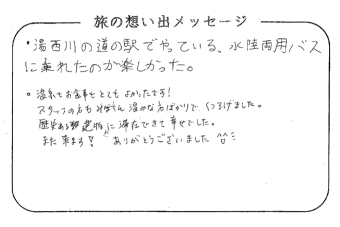 旅の想い出メッセージ
・湯西川の道の駅でやっている、水陸両用バス
に乗れたのが楽しかった。
。温泉もお食事もとてもよかったです!
スタッフの方もみなさん温かな方ばかりで、くつろげました。
歴史ある建物に滞在できて幸せでした。
また来ます!ありがとうございました ^^